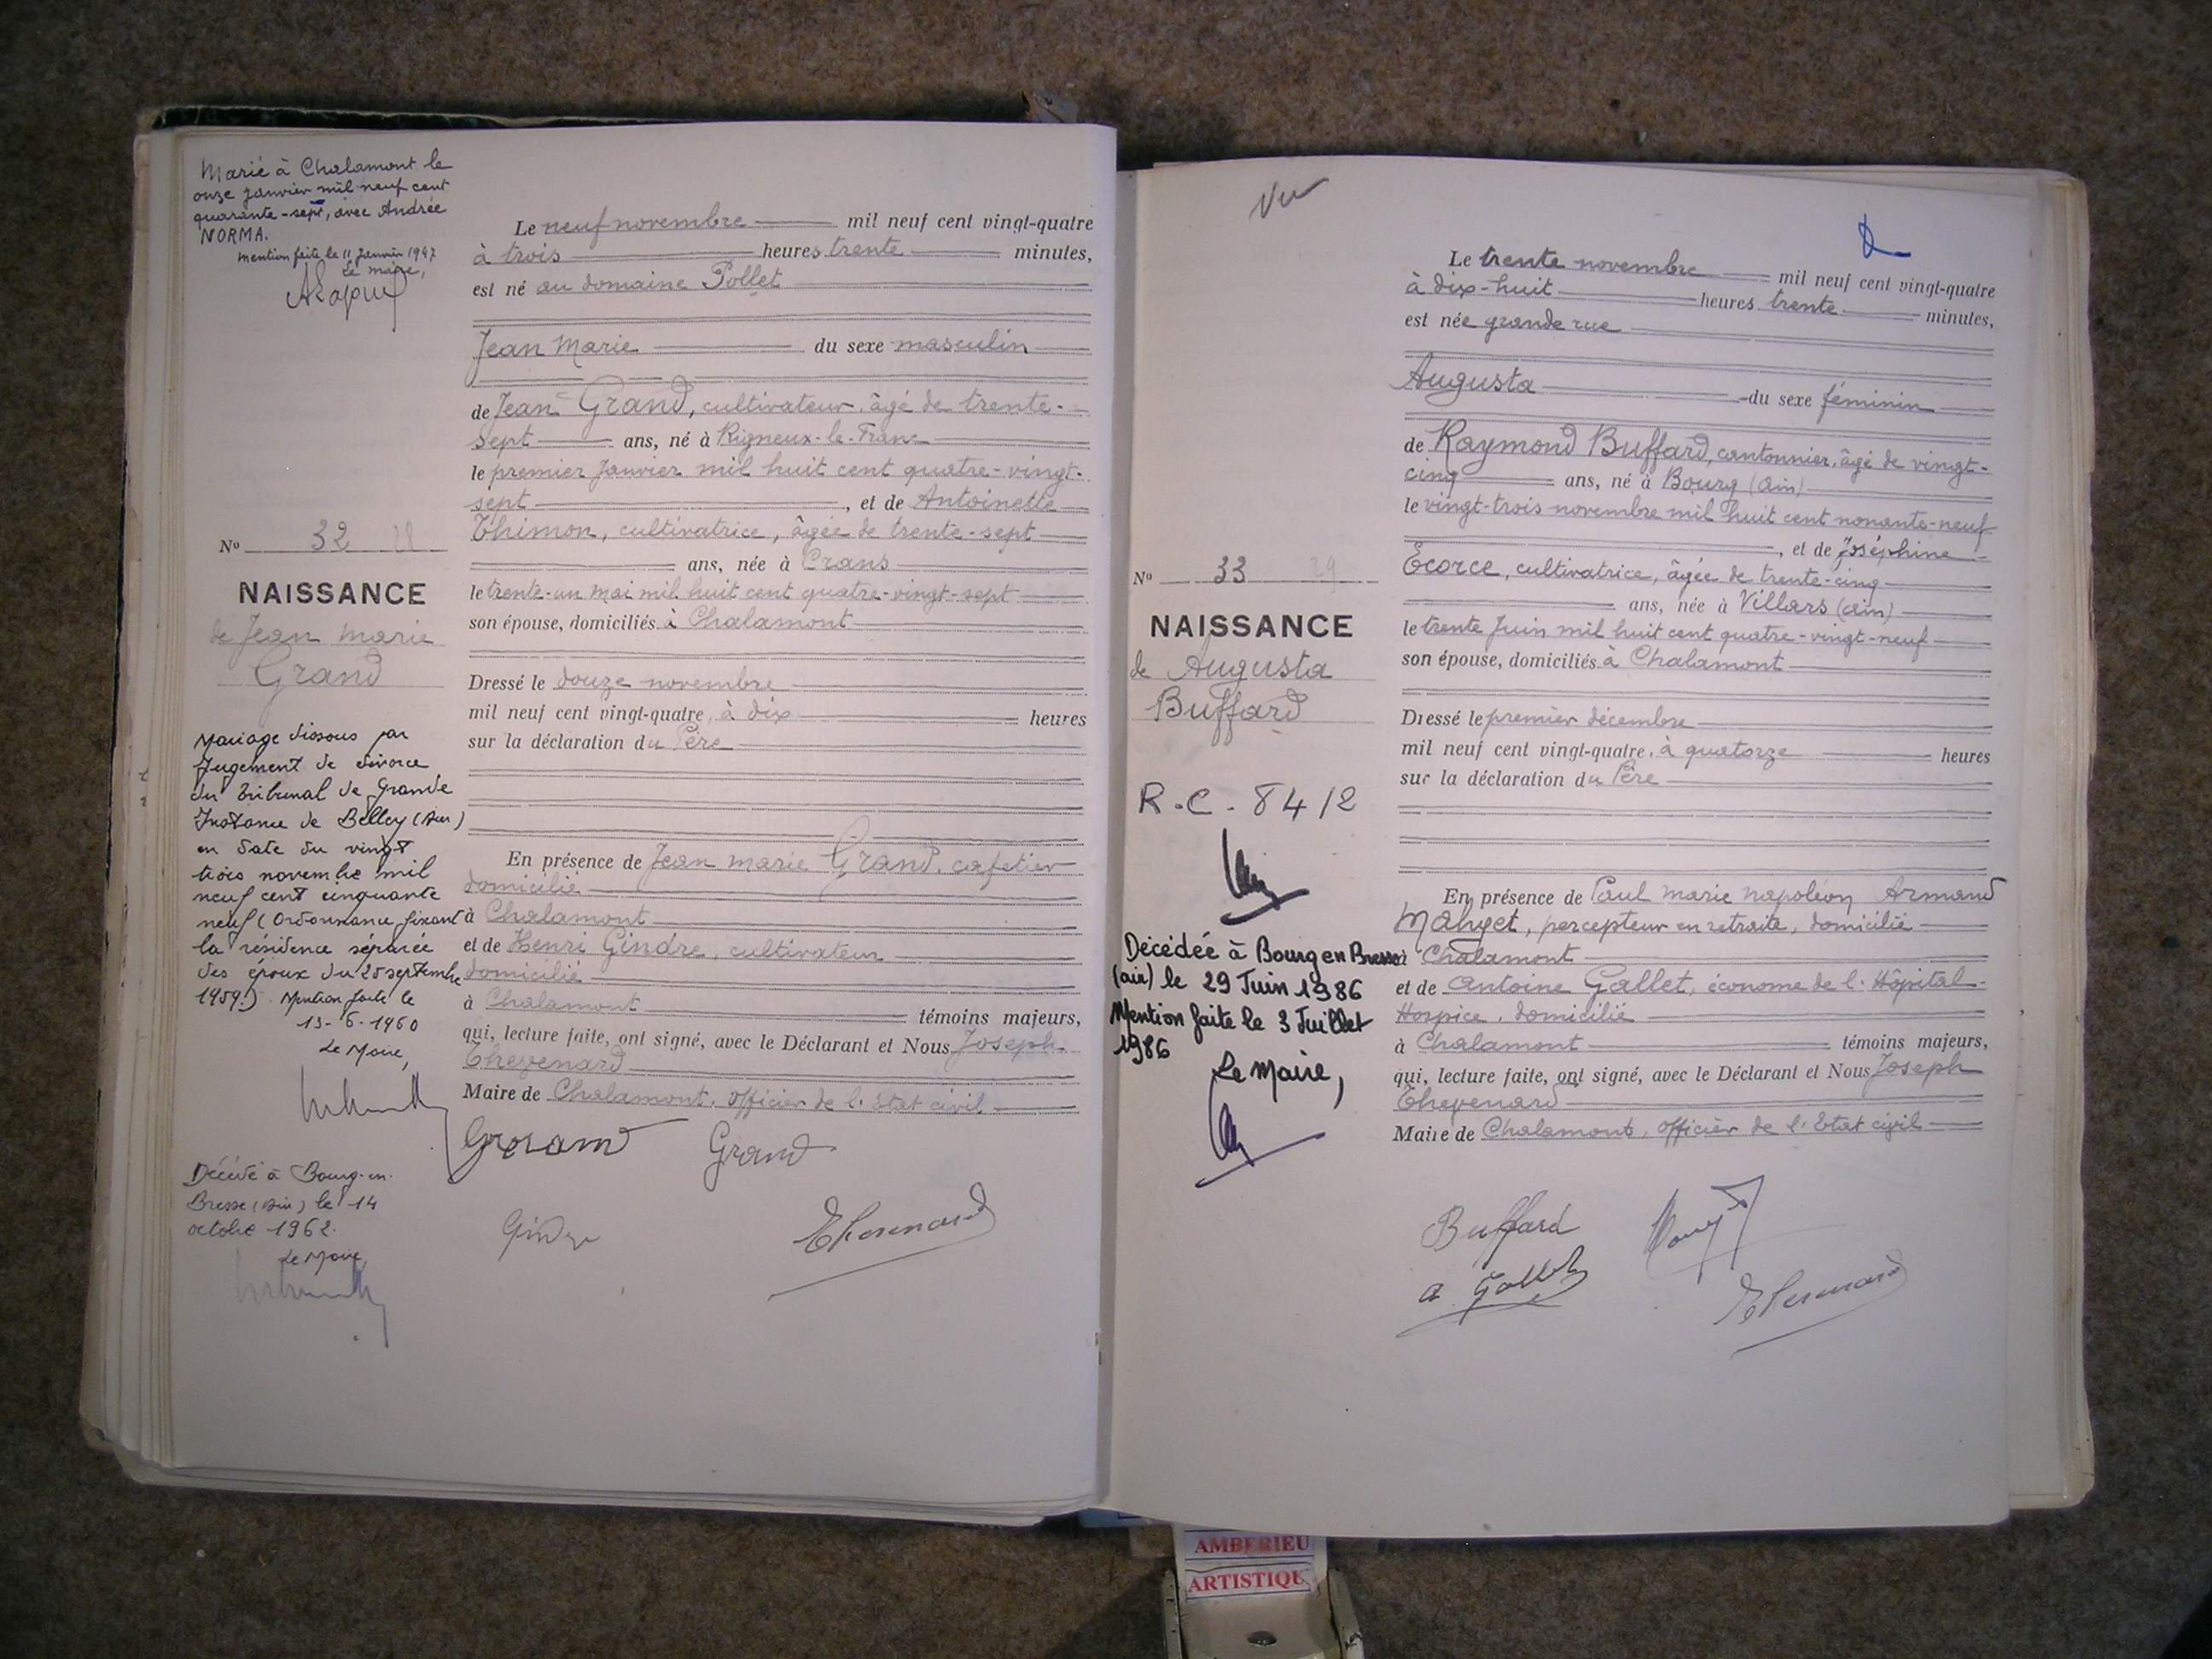 Marié à Chalamont le
onze janvier mil neuf cent
quarante-sept, avec Andrée
NORMA.
Mention faite le 11 Janvier 1947
Le maire,
No 32
NAISSANCE
de Jean Marie
Grand
Mariage dissous par
Jugement de divorce
du Tribunal de Grande
Instance de Belley (Ain)
en date du vingt
trois novembre mil
neuf cent cinquante
neuf (Ordonnance fixant
la résidence séparée
des époux du 25 septembre
1959.) Mention faite le
13-6-1960
Le Maire,
Décédé à Bourg-en-
Bresse (Ain) le 14
octobre 1962.
Le Maire
Le neuf novembre mil neuf cent vingt-quatre
à trois heures trente minutes,
est né au domaine Pollet
Jean Marie du sexe masculin
de Jean Grand, cultivateur, âgé de trente-
sept ans, né à Rigneux-le-Franc
le premier Janvier mil huit cent quatre-vingt-
sept, et de Antoinette
Thimon, cultivatrice, âgée de trente-sept
ans, née à Crans
le trente-un Mai mil huit cent quatre-vingt-sept
son épouse, domiciliés à Chalamont
Dressé le douze novembre
mil neuf cent vingt-quatre, à dix heures
sur la déclaration du Père
En présence de Jean Marie Grand, cafetier
domicilié
à Chalamont
et de Henri Gindre, cultivateur
domicilié
à Chalamont témoins majeurs,
qui, lecture faite, ont signé, avec le Déclarant et Nous Joseph
Thevenard
Maire de Chalamont, officier de l'Etat civil
Grand Grand
Gindre Thevenard
Vu
No 33 29
NAISSANCE
de Augusta
Buffard
R.C. 84/2
Décédée à Bourg en Bresse
(ain) le 29 Juin 1986
Mention faite le 3 Juillet
1986
Le Maire,
Le trente novembre mil neuf cent vingt-quatre
à dix-huit heures trente minutes,
est née grande rue
Augusta du sexe féminin
de Raymond Buffard, cantonnier, âgé de vingt-
cinq ans, né à Bourg (ain)
le vingt-trois novembre mil huit cent nonante-neuf
, et de Joséphine
Ecorce, cultivatrice, âgée de trente-cinq
ans, née à Villars (ain)
le trente Juin mil huit cent quatre-vingt-neuf
son épouse, domiciliés à Chalamont
Dressé le premier décembre
mil neuf cent vingt-quatre, à quatorze heures
sur la déclaration du Père
En présence de Paul Marie Napoléon Armand
Manget, percepteur en retraite, domicilié
à Chalamont
et de Antoine Gallet, économe de l'Hôpital-
Hospice, domicilié
à Chalamont témoins majeurs,
qui, lecture faite, ont signé, avec le Déclarant et Nous Joseph
Thevenard
Maire de Chalamont, officier de l'Etat civil
Buffard
a Gallet Thevenard
AMBERIEU
ARTISTIQU